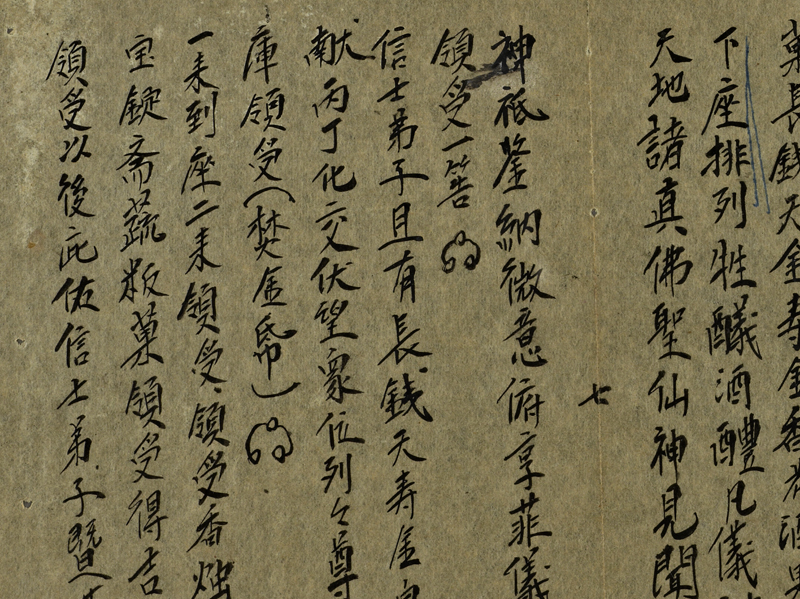 菓長錢天金壽金香
下座排列牲醼酒醴凡儀
天地諸真佛聖仙神見聞
七
神祗鑒納微意俯享菲儀
領受一筶
信士弟子且有長錢天壽金
献丙丁化交伏望衆位列々尊
庫領受(焚金帋)
一来到座二来領受領受香烛
宝錠斋蔬粄菓領受得吉
領受以後庇佑信士弟子暨